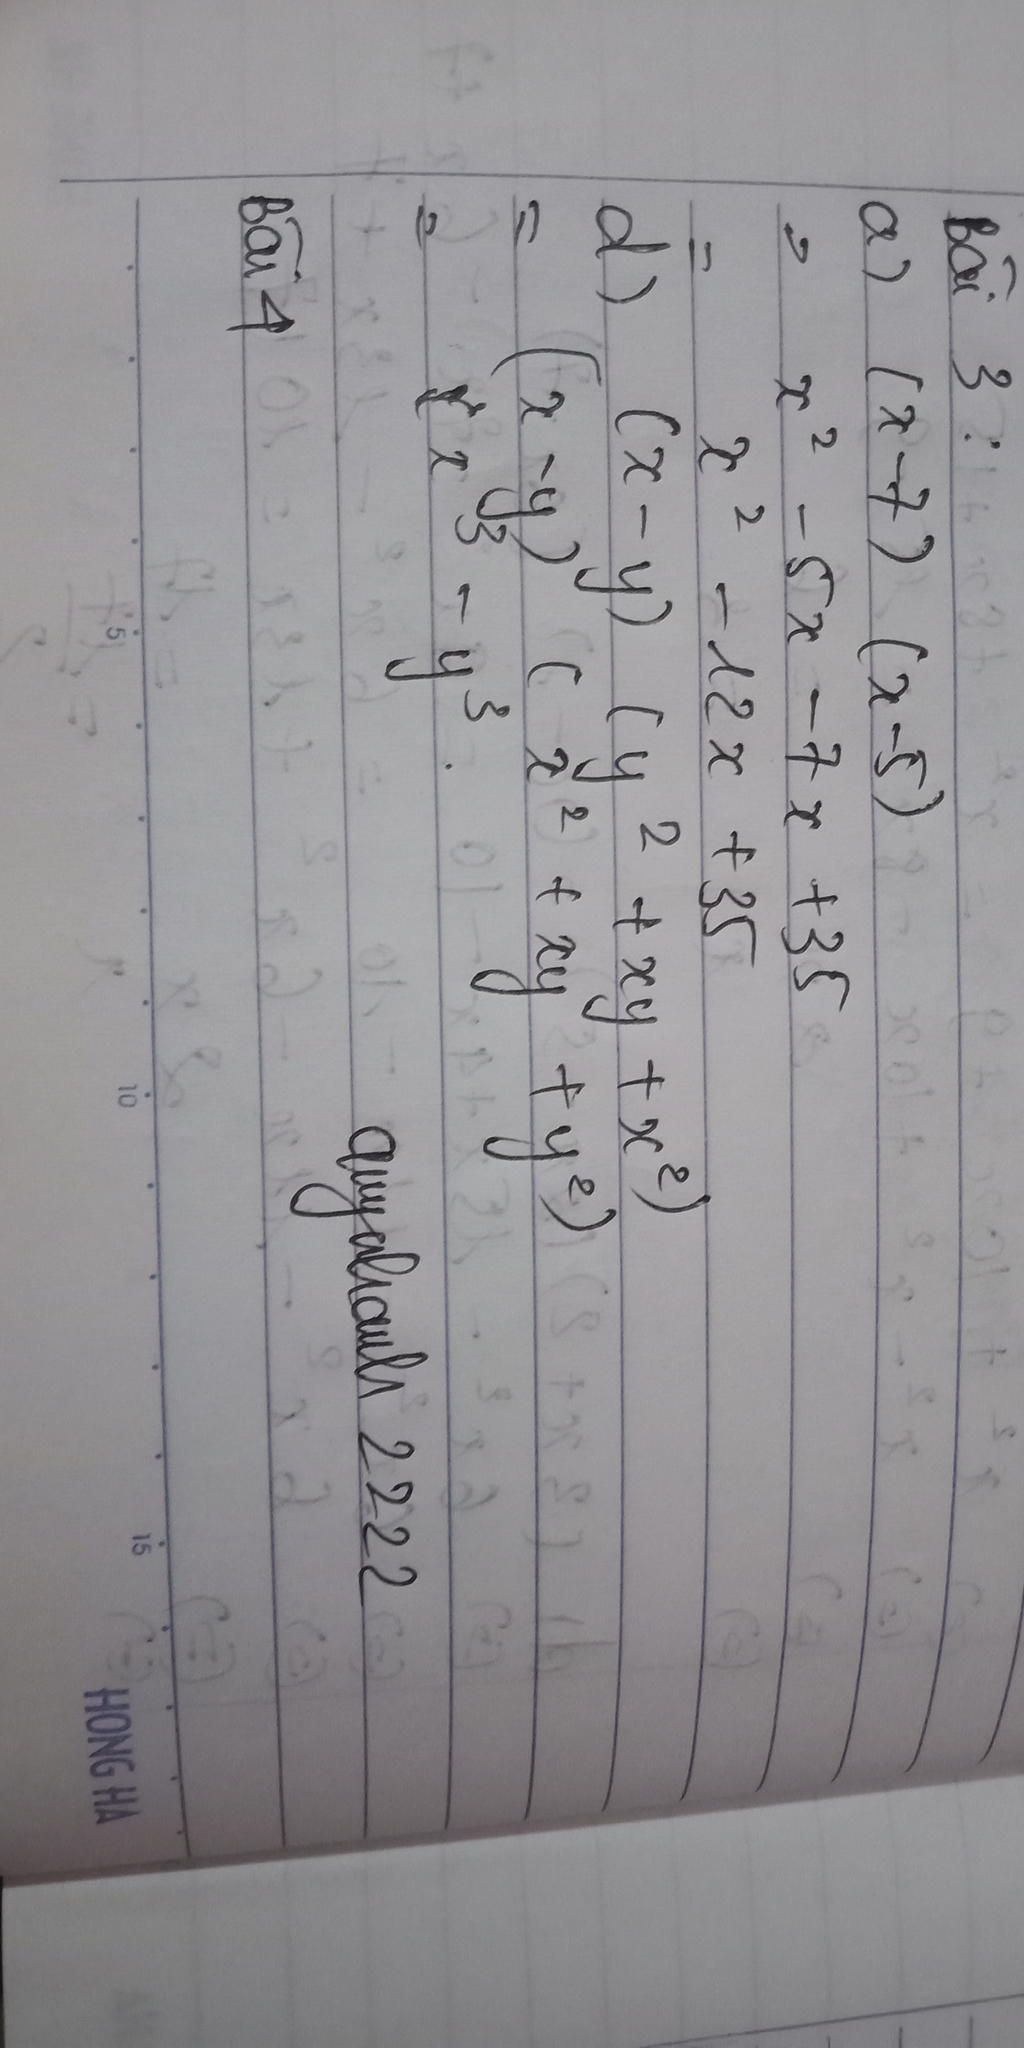 Bài 3:
a) (x-7) (x-5)
= x² - 5x - 7x + 35
= x² - 12x + 35
d) (x - y) (y² + xy + x²)
= (x - y) (x² + xy + y²)
= x³ - y³.
quyahauh 222
Bài 4
5 10 15
HONG HA